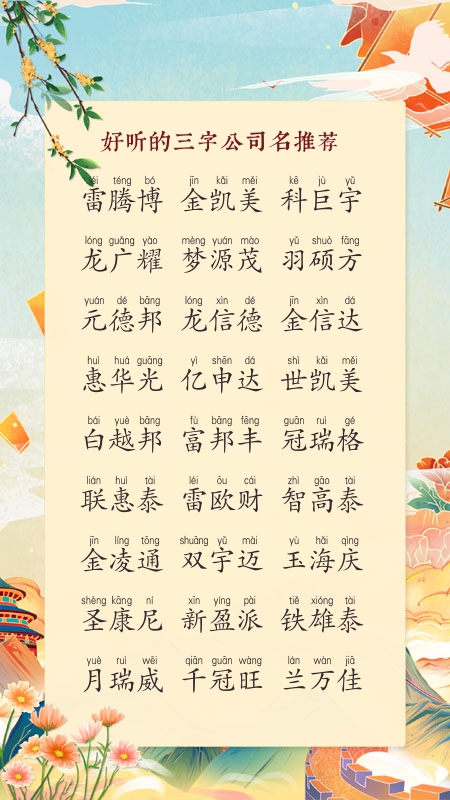 好听的三字公司名推荐
léi téng bó jīn kǎi měi kē jù yǔ
雷腾博 金凯美 科巨宇
lóng guǎng yào mèng yuán mào yǔ shuò fāng
龙广耀 梦源茂 羽硕方
yuán dé bāng lóng xìn dé jīn xìn dá
元德邦 龙信德 金信达
huì huá guāng yì shēn dá shì kǎi měi
惠华光 亿申达 世凯美
bái yuè bāng fù bāng fēng guān ruì gé
白越邦 富邦丰 冠瑞格
lián huì tài léi ōu cái zhì gāo tài
联惠泰 雷欧财 智高泰
jīn líng tōng shuāng yǔ mài yù hǎi qìng
金凌通 双宇迈 玉海庆
shèng kāng ní xīn yíng pài tiě xióng tài
圣康尼 新盈派 铁雄泰
yuè ruì wēi qiān guān wàng lán wàn jiā
月瑞威 千冠旺 兰万佳